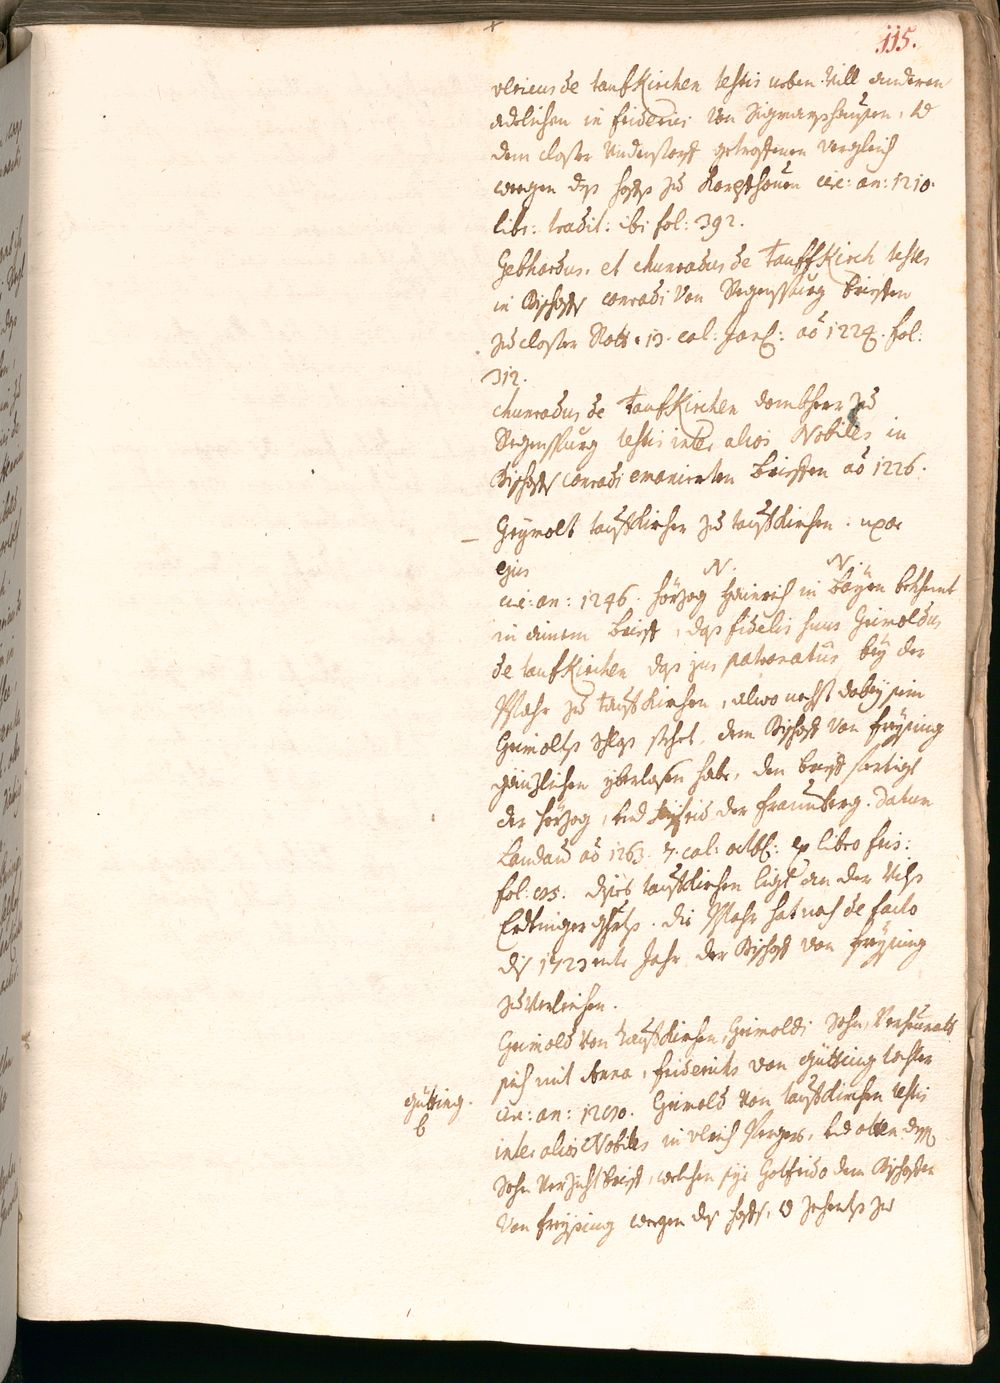 115.
Ulricus de Taufkirchen testis neben vill anderen
adelichen in Friderici von Sigmarshausen, vnd
dem closter Understorff getroffenen vergleich
wegen des hoffs zu circ: an: 1210.
libr: tradit: ibi fol: 392.
Gebhardus. et Chunradus de Taufkirch testes
in Bischoffs Conradi von Regenspurg brieffen
zu closter Rott. 13. cal: Jan: aõ 1224. fol:
312.
Chunradus de Taufkirchen dombherr zu
Regenspurg testis inter alios Nobiles in
Bischoffs Conradi brieffen aõ 1226.
Grymolt taufkircher zu taufkirchen. uxor
ejus
N. N.
circ: an: 1246. herzog Hainrich in Bayrn bekhennt
in ainem brieff, das fidelis suus Grimoldus
de taufkirchen das jus patronatus bey der
Pfahr zu taufkirchen, alwo nechst dabey sein
Grimolts schlos stehet, dem Bischoff von freysing
gänzlichen yberlassen habe, den brieff fertigt
der herzog, vnd der fraunberg. Datum
Landau aõ 1263. 7. cal: octb: ex libro fris:
fol: dises taufkirchen ligt an der Vils
Erdtinger ghrts. Die Pfahr hat noch de facto
dis 1723 inte Jahr der Bischoff von freysing
zuverleichen.
Grimold von taufkirchen, Grimoldi Sohn, verheurath
sich mit Anna, friderichs von Gütting tochter
Gütting.
circ: an: Grimold von taufkirchen testis
inter alios Nobiles in Ulrich Pergers, vnd otten dessen
Sohn verzichtbrieff, welchen sye Gotfrido dem Bischoffen
von freysing wegen des hoffs, vnd zehents zu